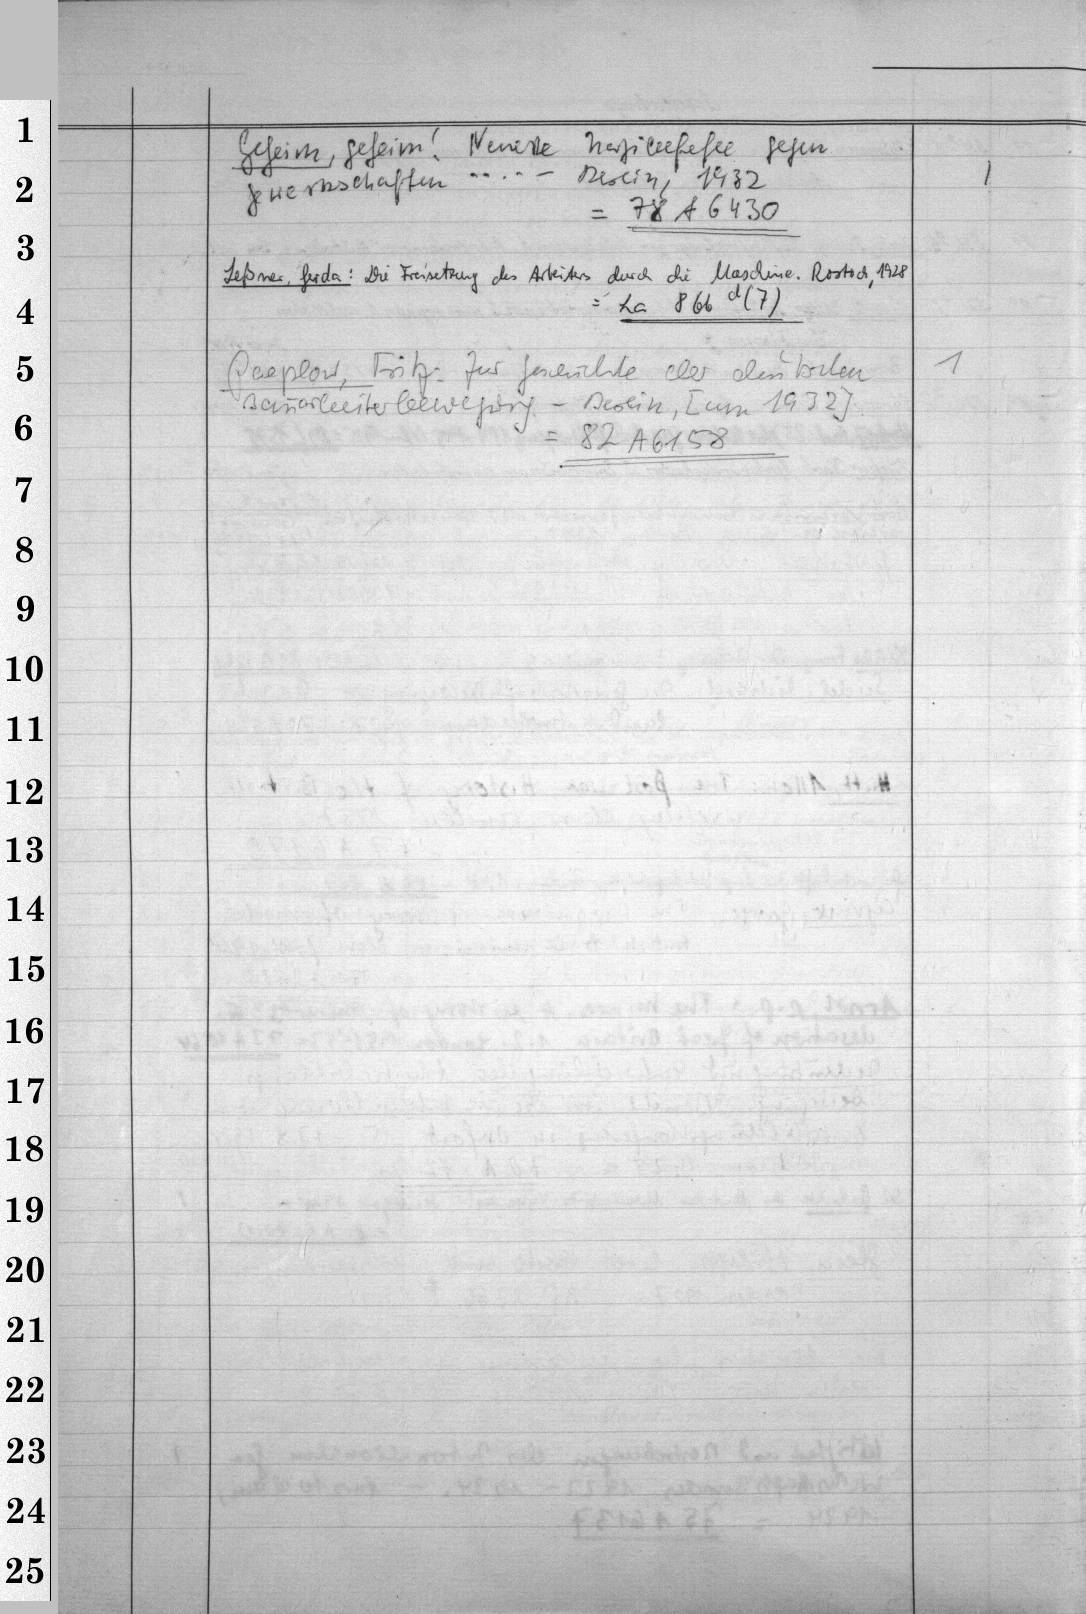 1
2
3
4
5
6
7
8
9
10
11
12
13
14
15
16
17
18
19
20
21
22
23
24
25
Geheim, geheim! Neueste Nazibefehle gegen
Gewerkschaften ..... – Berlin, 1932
1
= 78 A 6430
Leßner, Gerda: Die Freisetzung des Arbeiters durch die Maschine. Rostock, 1928
= La 866 d(7)
Paeplow, Fritz: Zur Geschichte der deutschen
1
Bauarbeiterbewegung – Berlin, [um 1932].
= 82 A 6158